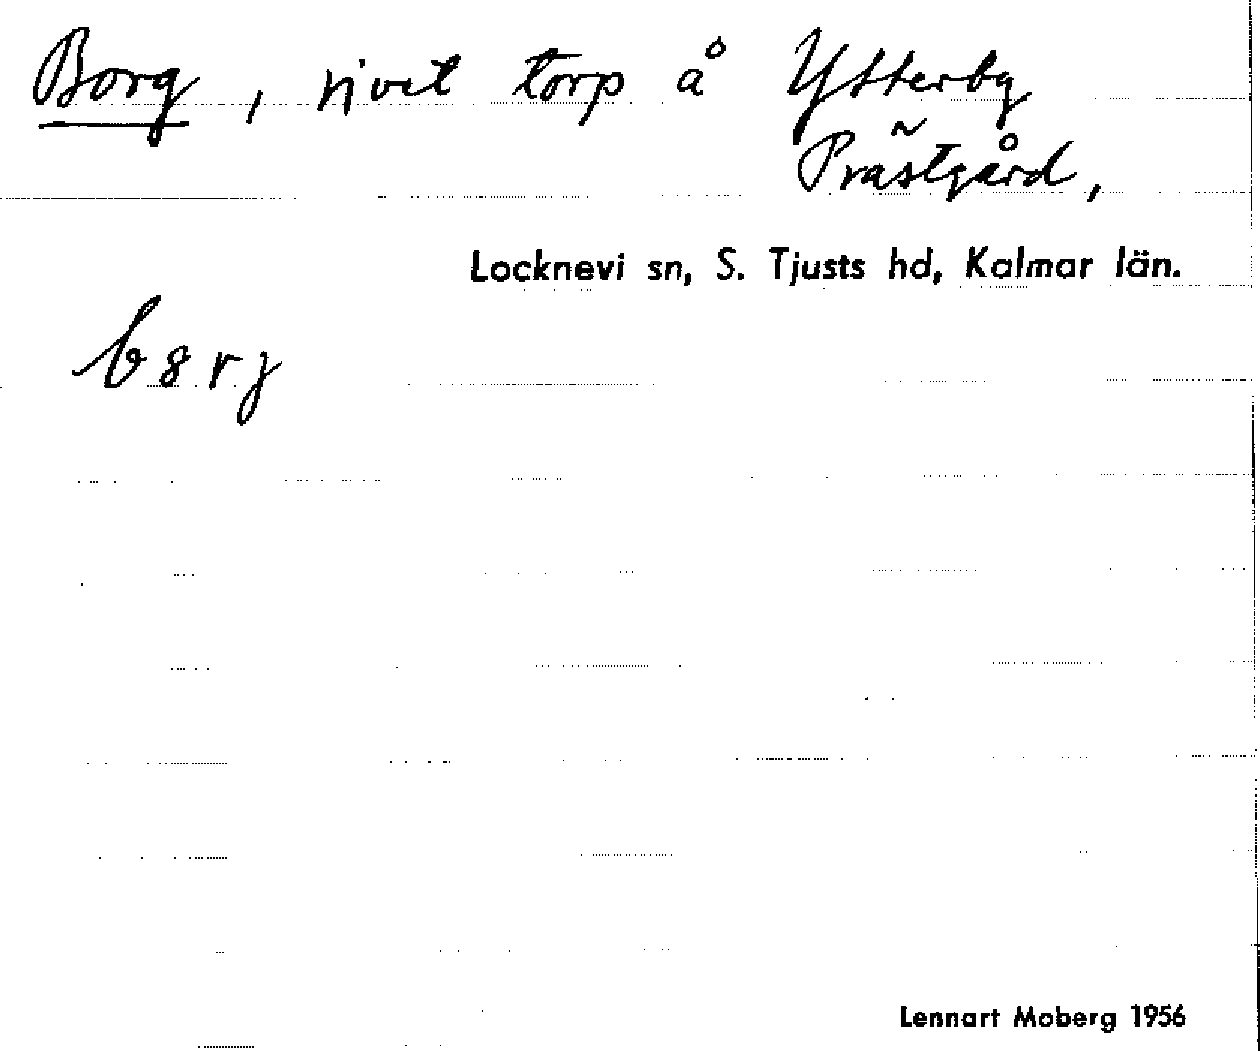 Borg, rivet torp å Ytterby
Prästgård,
Locknevi sn, S. Tjusts hd, Kalmar län.
b8rj
Lennart Moberg 1956